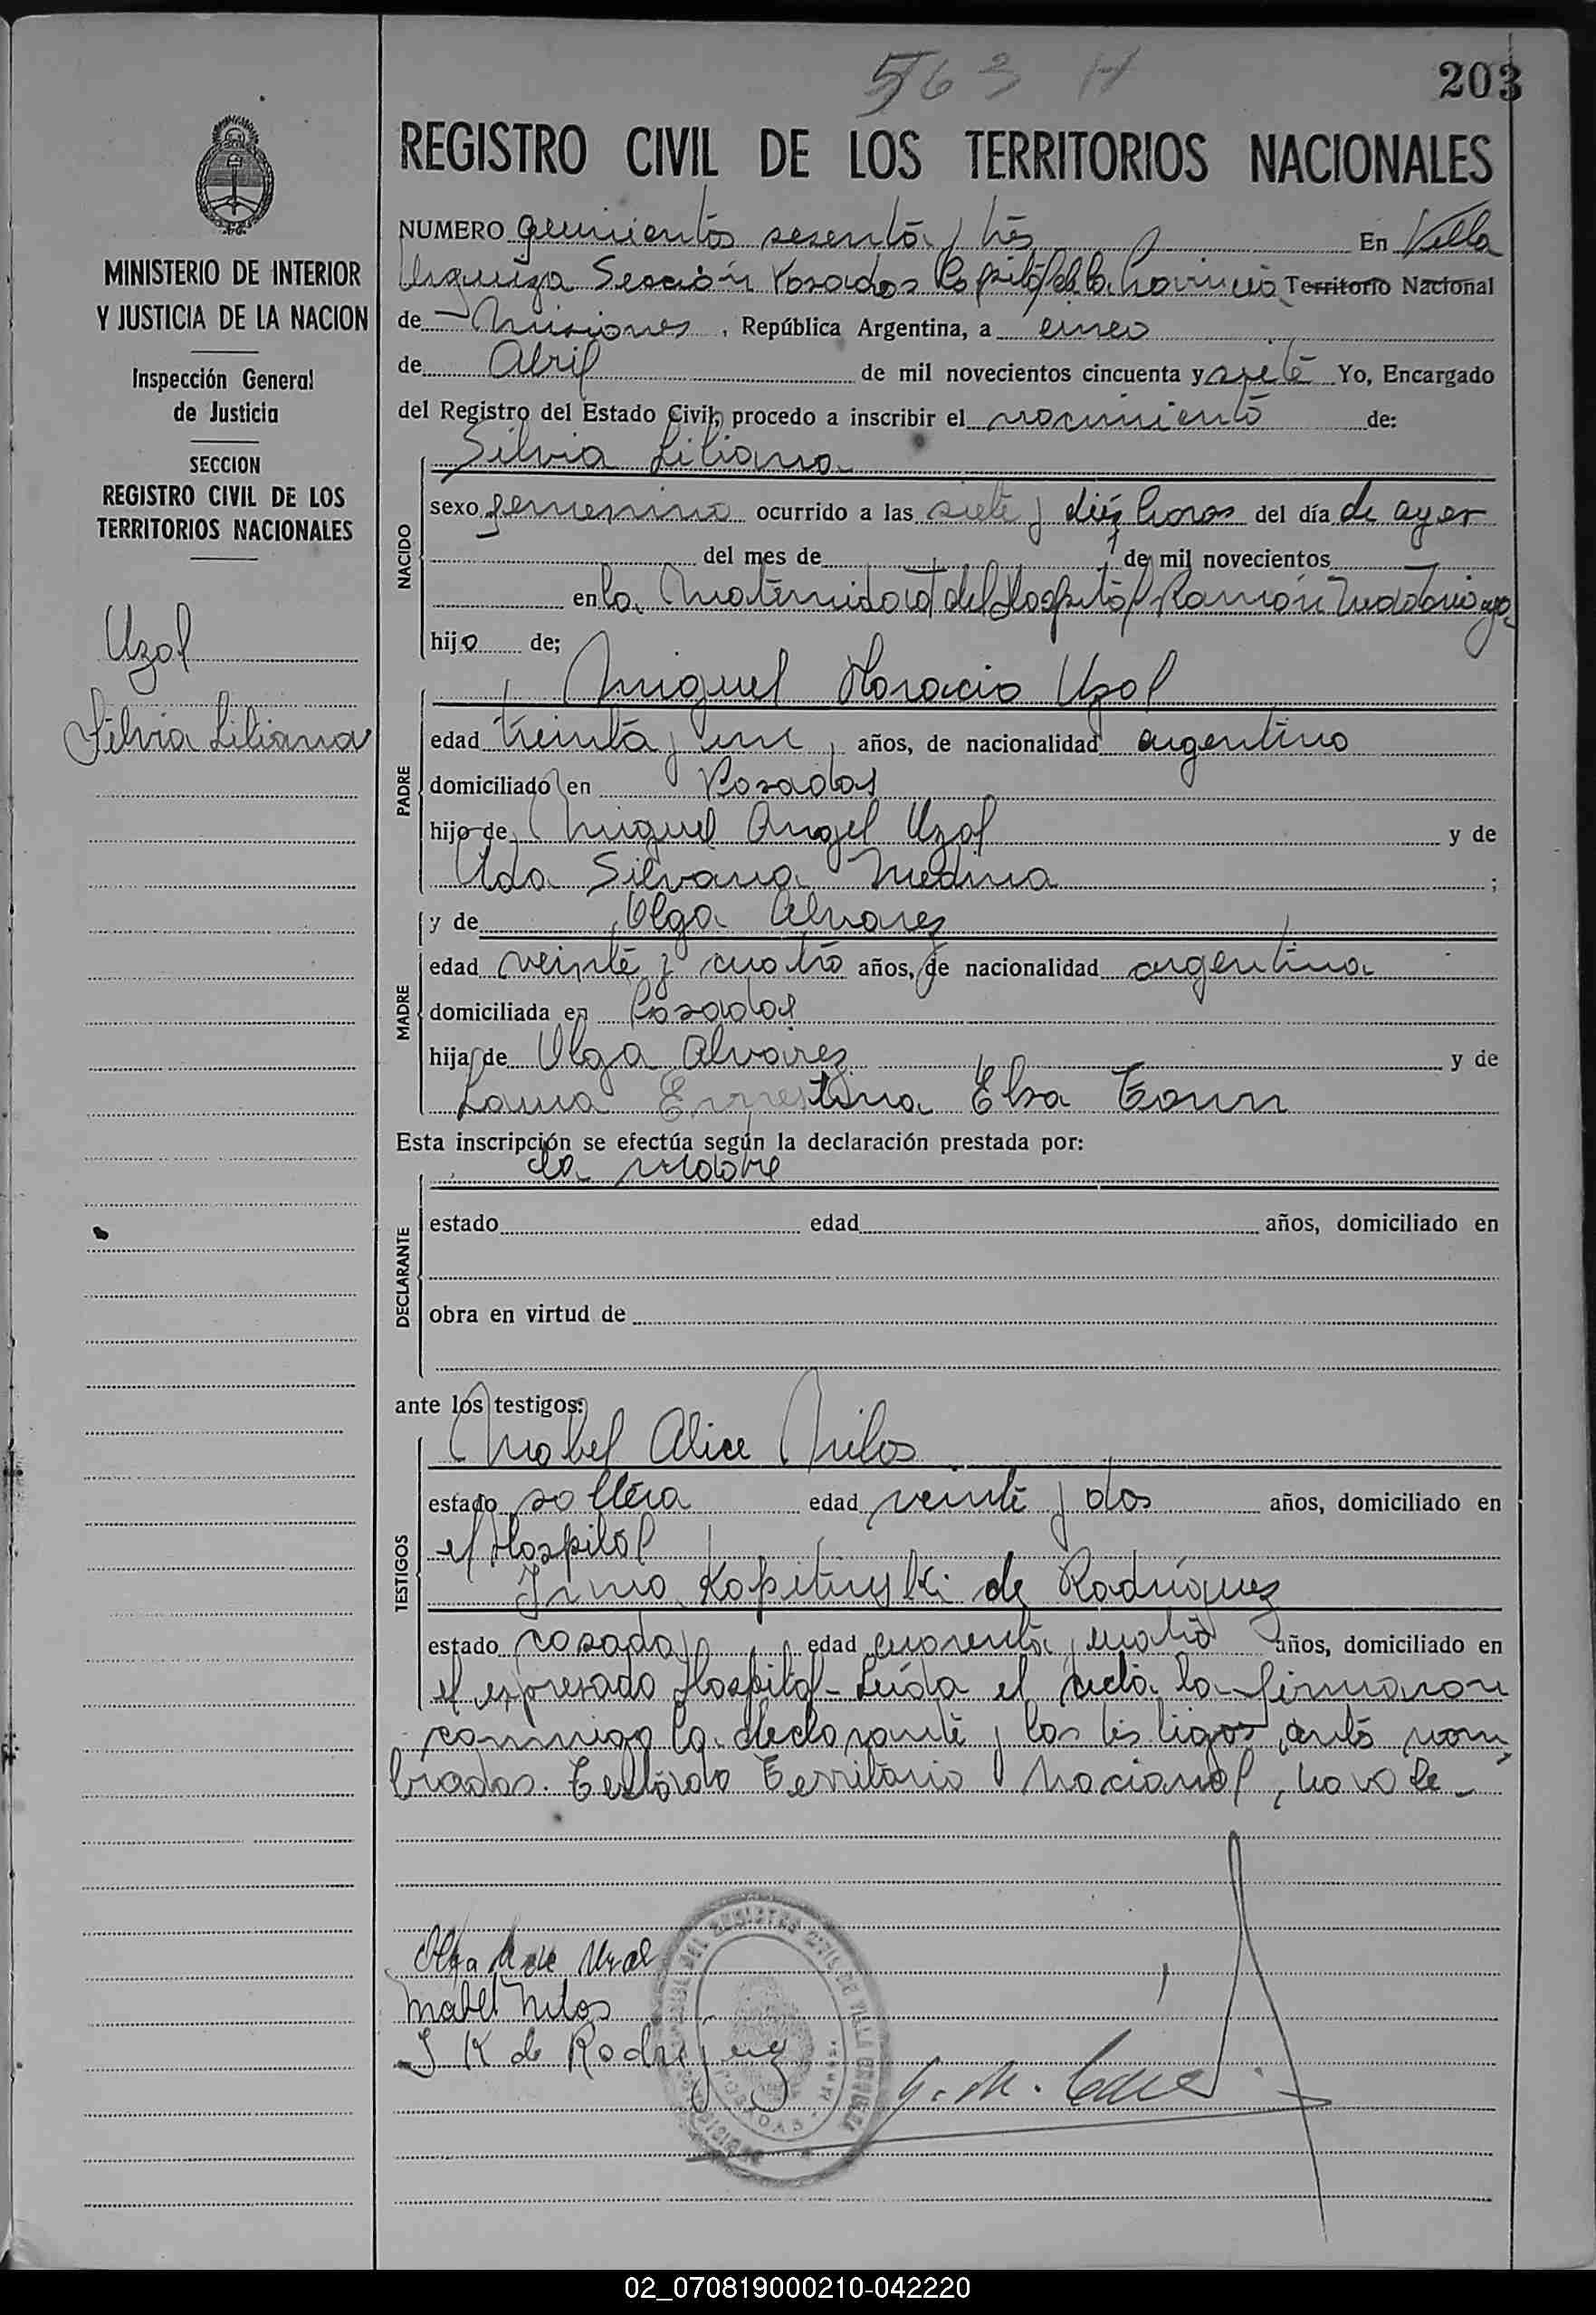 563 H
203
REGISTRO CIVIL DE LOS TERRITORIOS NACIONALES
MINISTERIO DE INTERIOR
Y JUSTICIA DE LA NACION
Inspección General
de Justicia
SECCION
REGISTRO CIVIL DE LOS
TERRITORIOS NACIONALES
Uzal
Silvia Liliana
NUMERO quinientos sesenta y tres En Villa
Urquiza Sección Posadas Capital de la Provincia Territorio Nacional
de Misiones, República Argentina, a cinco
de Abril de mil novecientos cincuenta y siete Yo, Encargado
del Registro del Estado Civil, procedo a inscribir el nacimiento de:
Silvia Liliana
NACIDO
sexo femenino ocurrido a las siete y diez horas del día de ayer
del mes de de mil novecientos
en la Maternidad del Hospital Ramón Madariaga
hijo de;
Miguel Horacio Uzal
PADRE
edad treinta y un años, de nacionalidad argentino
domiciliado en Posadas
hijo de Miguel Angel Uzal y de
Ada Silvana Medina ;
y de Olga Alvarez
MADRE
edad veinte y cuatro años, de nacionalidad argentina
domiciliada en Posadas
hija de Olga Alvarez y de
Laura Ernestina Elsa
Esta inscripción se efectúa según la declaración prestada por:
la madre
DECLARANTE
estado edad años, domiciliado en
obra en virtud de
ante los testigos:
Mabel Alice Milos
TESTIGOS
estado soltera edad veinte y dos años, domiciliado en
el Hospital
Irma de Rodriguez
estado casada edad cuarenta y cuatro años, domiciliado en
el expresado Hospital - Leída el acta la firmaron
conmigo la declarante y los testigos antes nom
brados. Testado Territorio Nacional, no vale
Olga A de Uzal
Mabel Milos
I K de Rodriguez
REGISTRO CIVIL DE VILLA URQUIZA
POSADAS
02_070819000210-042220